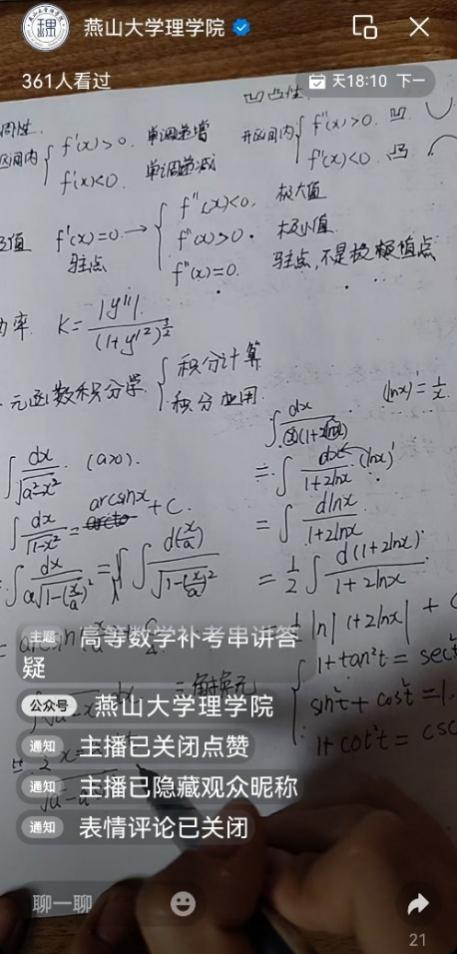 燕山大学理学院
361人看过
天18:10 下一
凹凸性.
f'(x)>0. 单调递增
区间内
f'(x)<0. 单调递减
开区间内
f''(x)>0. 凹
f''(x)<0. 凸
f'(x)=0. →
驻点
f''(x)<0. 极大值
f''(x)>0. 极小值
f''(x)=0. 驻点,不是
K=|y''|/(1+y'²)^{3/2}
一元函数积分学.
积分计算
积分应用.
∫dx/√(a²-x²). (a>0).
∫dx/√(1-x²) = arcsinx + C.
∫dx/(a√(1-(x/a)²)) = ∫d(x/a)/√(1-(x/a)²)
(lnx)'=1/x.
∫dx/(x(1+2lnx))
= ∫dx/(1+2lnx) (lnx)'
= ∫dlnx/(1+2lnx)
= 1/2∫d(1+2lnx)/(1+2lnx).
ln|1+2lnx| + C
1+tan²t = sec²t
sin²t + cos²t = 1.
1+cot²t = csc
主题 高等数学补考串讲答
疑
公众号 燕山大学理学院
通知 主播已关闭点赞
通知 主播已隐藏观众昵称
通知 表情评论已关闭
聊一聊
21